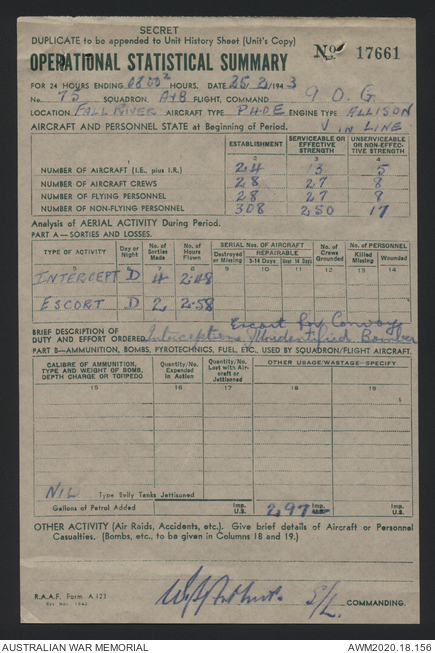 SECRET
DUPLICATE to be appended to Unit History Sheet (Unit's Copy)
OPERATIONAL STATISTICAL SUMMARY No 17661
FOR 24 HOURS ENDING 0800Z HOURS. DATE 25 2/194 3
No. 75 SQUADRON. A+B FLIGHT, COMMAND 9 O.G.
LOCATION FALL RIVER AIRCRAFT TYPE P40E ENGINE TYPE ALLISON
AIRCRAFT AND PERSONNEL STATE at Beginning of Period. V IN LINE
ESTABLISHMENT SERVICEABLE OR EFFECTIVE STRENGTH UNSERVICEABLE OR NON-EFFECTIVE STRENGTH
1 2 3 4
NUMBER OF AIRCRAFT (I.E., plus I.R.) 24 13 5
NUMBER OF AIRCRAFT CREWS 28 27 8
NUMBER OF FLYING PERSONNEL 28 27 8
NUMBER OF NON-FLYING PERSONNEL 308 250 17
Analysis of AERIAL ACTIVITY During Period.
PART A—SORTIES AND LOSSES.
TYPE OF ACTIVITY Day or Night No. of Sorties Made No. of Hours Flown SERIAL NOS. OF AIRCRAFT Destroyed or Missing REPAIRABLE 3-14 Days Over 14 Days No. of Crews Grounded No. of PERSONNEL Killed Missing Wounded
5 6 7 8 9 10 11 12 13 14
INTERCEPT D 4 2.48
ESCORT D 2 2.58
BRIEF DESCRIPTION OF DUTY AND EFFORT ORDERED Escort for Convoy
Interception Unidentified Bomber
PART B—AMMUNITION, BOMBS, PYROTECHNICS, FUEL, ETC., USED BY SQUADRON/FLIGHT AIRCRAFT.
CALIBRE OF AMMUNITION, TYPE AND WEIGHT OF BOMB, DEPTH CHARGE OR TORPEDO Quantity/No. Expended in Action Quantity/No. Lost with Aircraft or Jettisoned OTHER USAGE/WASTAGE—SPECIFY
15 16 17 18 19
NIL Type Belly Tanks Jettisoned
Gallons of Petrol Added Imp. U.S. 297 Imp. U.S.
OTHER ACTIVITY (Air Raids, Accidents, etc.). Give brief details of Aircraft or Personnel
Casualties. (Bombs, etc., to be given in Columns 18 and 19.)
S/L. COMMANDING.
R.A.A.F. Form A 123
AUSTRALIAN WAR MEMORIAL AWM2020.18.156